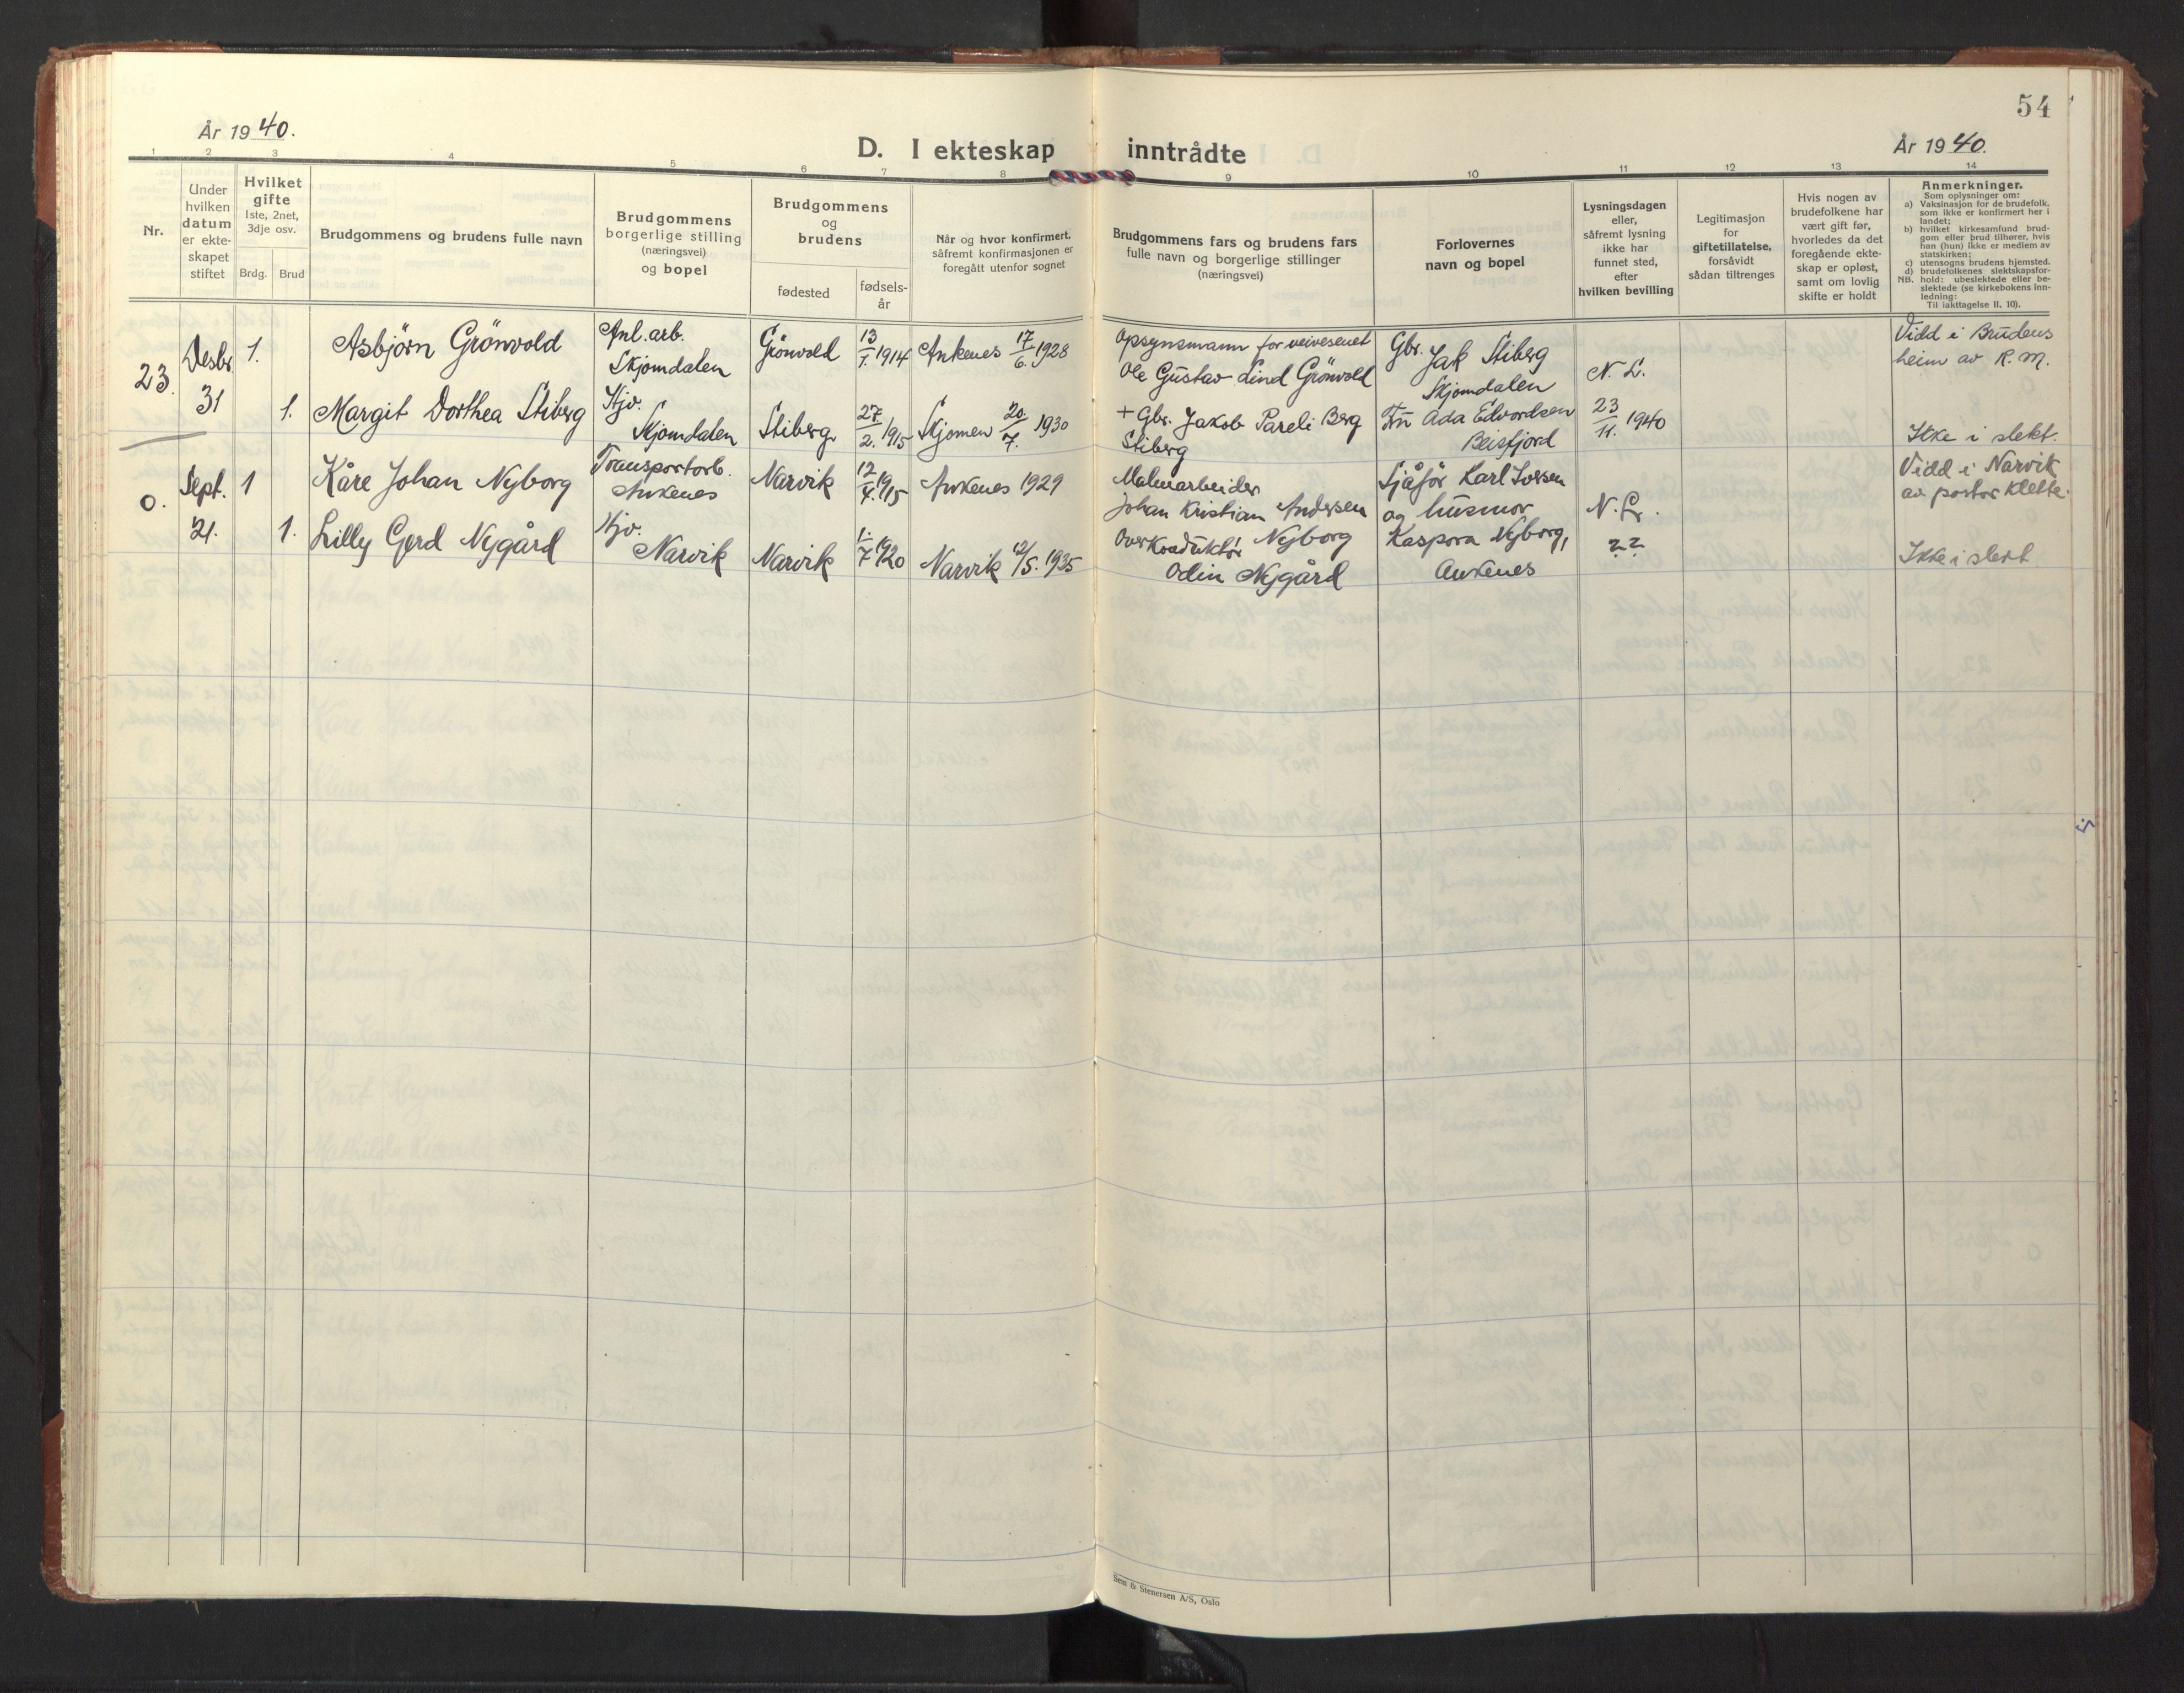 54
År 1940.
D. I ekteskap inntrådte
År 1940.
1 2 3 4 5 6 7 8 9 10 11 12 13 14
Nr.
Under
hvilken
datum
er ekte-
skapet
stiftet
Hvilket
gifte
1ste, 2net,
3dje osv.
Brdg.
Brud
Brudgommens og brudens fulle navn
Brudgommens
borgerlige stilling
(næringsvei)
og bopel
Brudgommens
og
brudens
fødested
fødsels-
år
Når og hvor konfirmert,
såfremt konfirmasjonen er
foregått utenfor sognet
Brudgommens fars og brudens fars
fulle navn og borgerlige stillinger
(næringsvei)
Forlovernes
navn og bopel
Lysningsdagen
eller,
såfremt lysning
ikke har
funnet sted,
efter
hvilken bevilling
Legitimasjon
for
giftetillatelse,
forsåvidt
sådan tiltrenges
Hvis nogen av
brudefolkene har
vært gift før,
hvorledes da det
foregående ekte-
skap er opløst,
samt om lovlig
skifte er holdt
Anmerkninger.
Som oplysninger om:
a) Vaksinasjon for de brudefolk,
som ikke er konfirmert her i
landet;
b) hvilket kirkesamfund brud-
gom eller brud tilhører, hvis
han (hun) ikke er medlem av
statskirken;
c) utensogns brudens hjemsted.
d) brudefolkenes slektskapsfor-
NB. hold: ubeslektede eller be-
slektede (se kirkebokens inn-
ledning:
Til iakttagelse II, 10).
23.
Desbr.
31
1.
Asbjörn Grönvold
Anl.arb.
Skjomdalen
Grönvold
13/1. 1914
Ankenes 17/6. 1928
Opsynsmann for veivesenet
Ole Gustav Lind Grönvold
Gbr. Jak Stiberg
Skjomdalen
N. L.
Vidd i Brudens
heim av R. M.
1.
Margit Dorthea Stiberg
Hjv.
Skjomdalen
Stiberg
27/2. 1915
Skjomen 20/7. 1930
+ Gbr. Jakob Pareli Berg
Stiberg
Fru Ada Edvardsen
Beisfjord
23/11. 1940
Ikke i slekt.
0.
Sept.
21.
1
Kåre Johan Nyborg
Transportarb.
Ankenes
Narvik
12/4. 1915
Ankenes 1929
Malmarbeider
Johan Kristian Andersen
Nyborg
Sjåfør Karl Iversen
og husmor
Kaspara Nyborg,
Ankenes
N. L.
??
Vidd i Narvik
av pastor Klette.
1.
Lilly Gerd Nygård
Hjv.
Narvik
Narvik
1./7 1920
Narvik 12/5. 1935
Overkonduktör
Odin Nygård
Ikke i slekt
Sem & Stenersen A/S, Oslo